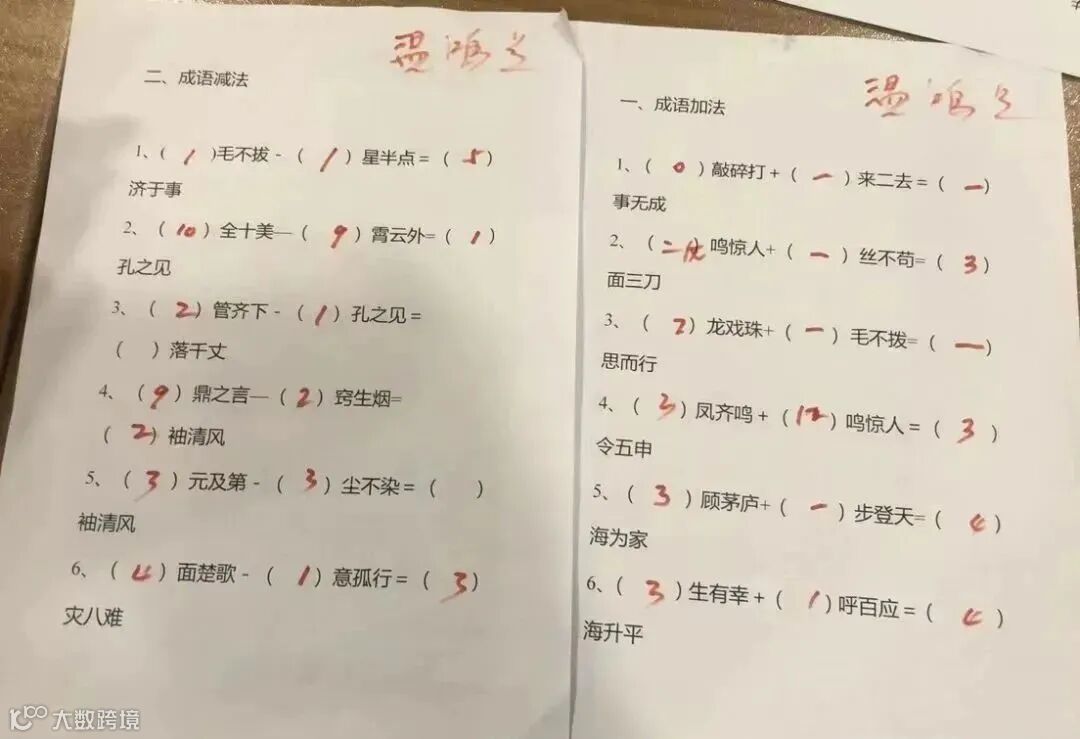 温鸿
二、成语减法
1、(1)毛不拔-(1)星半点=(5)
济于事
2、(10)全十美—(9)霄云外=(1)
孔之见
3、(2)管齐下-(1)孔之见=
( )落千丈
4、(9)鼎之言—(2)窍生烟=
(2)袖清风
5、(3)元及第-(3)尘不染=( )
袖清风
6、(4)面楚歌-(1)意孤行=(3)
灾八难
温鸿
一、成语加法
1、(0)敲碎打+(一)来二去=(一)
事无成
2、(二)鸣惊人+(一)丝不苟=(3)
面三刀
3、(2)龙戏珠+(一)毛不拨=(一)
思而行
4、(3)凤齐鸣+(12)鸣惊人=(3)
令五申
5、(3)顾茅庐+(一)步登天=(4)
海为家
6、(3)生有幸+(1)呼百应=(4)
海升平
大数跨境